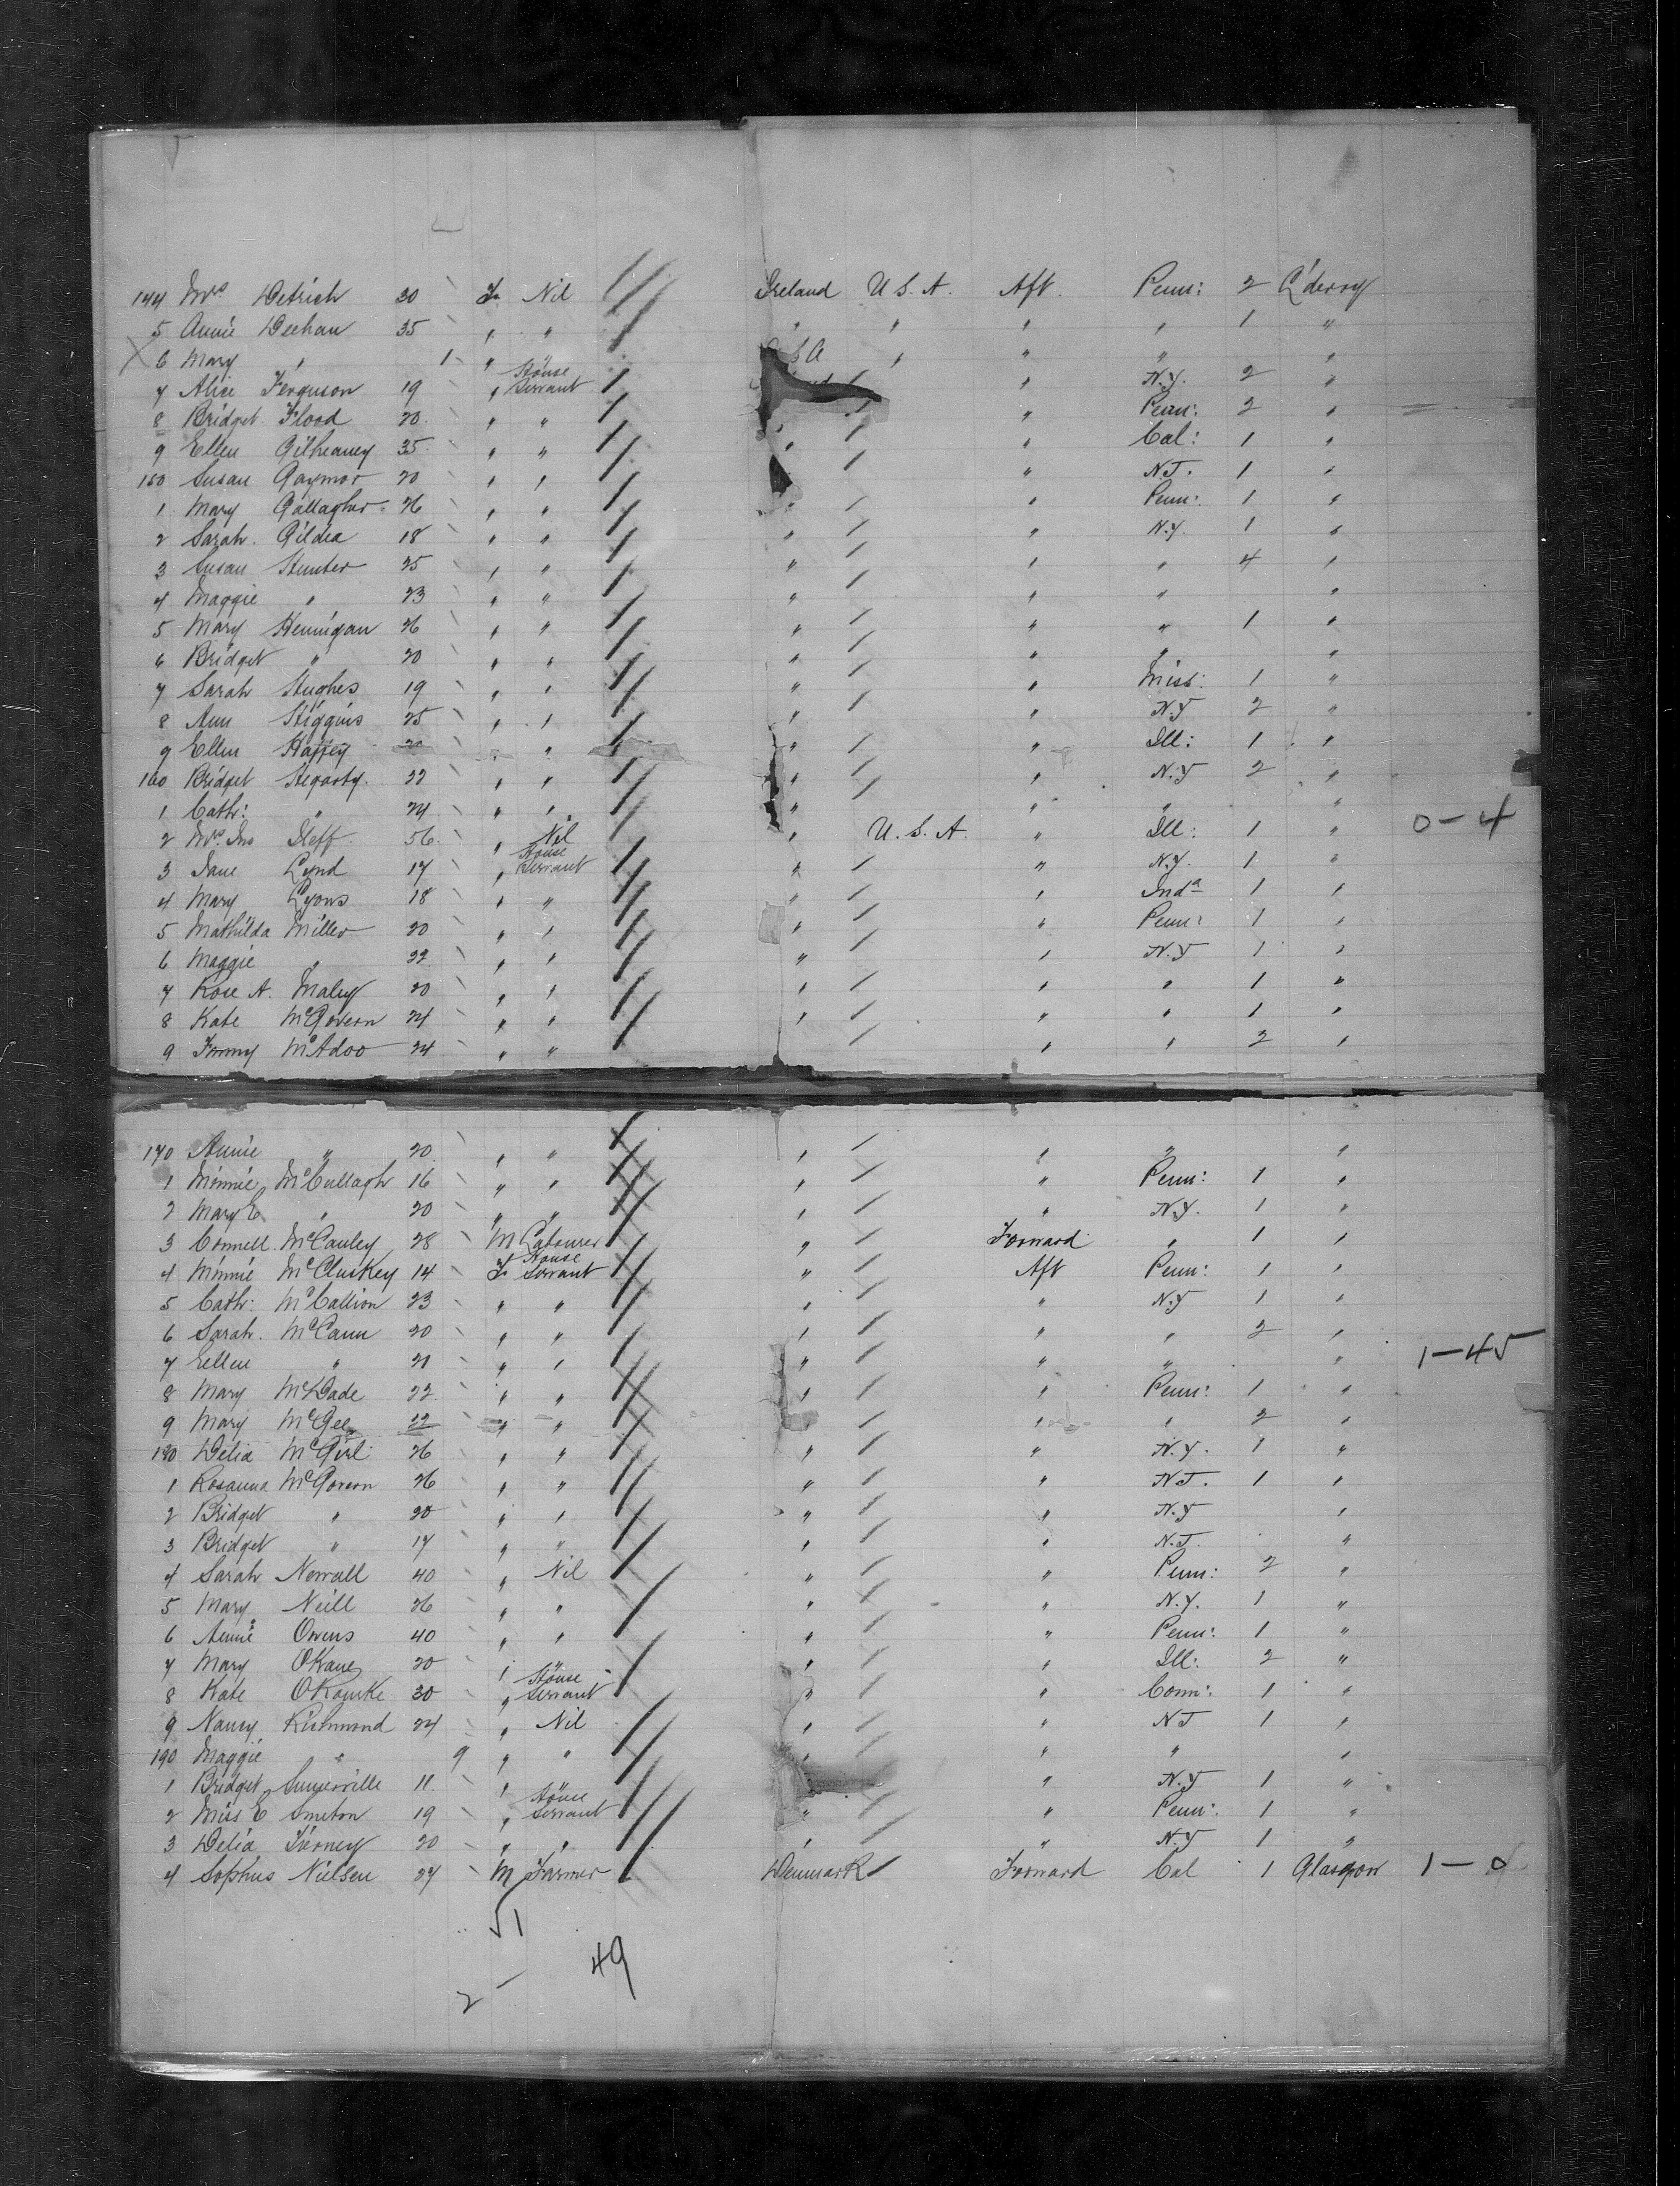 144 Mrs Detrich 30 F. Nil Ireland U.S.A. Aft. Penn: 2 L'derry
5 Annie Deehan 35 " " " " " " 1 "
X 6 Mary " 1 " " S A " " " "
7 Alice Ferguson 19 " House Servant / " N.Y. 2 "
8 Bridget Flood 20 " " / " Penn: 2 "
9 Ellen Gilheaney 35 " " " / " Cal: 1 "
150 Susan Gaynor 20 " " / " N.J. 1 "
1 Mary Gallagher 26 " " " / " Penn: 1 "
2 Sarah Gildea 18 " " " / " N.Y. 1 "
3 Susan Hunter 25 " " " / " " 4 "
4 Maggie " 23 " " " / " " "
5 Mary Hennigan 26 " " " / " " 1 "
6 Bridget " 20 " " " / " " "
7 Sarah Hughes 19 " " " / " Miss: 1 "
8 Ann Higgins 25 " " " / " N.Y 2 "
9 Ellen Haffey 20 " " " / " Ill: 1 "
160 Bridget Hegarty 22 " " " / " N.Y 2 "
1 Cath: " 24 " " " / " " "
2 Mrs. Jno Ileff 56 " Nil " U.S.A. " Ill: 1 " 0-4
3 Jane Lynd 17 " House Servant " / " N.Y. 1 "
4 Mary Lyons 18 " " " / " Inda 1 "
5 Mathilda Miller 20 " " " / " Penn: 1 "
6 Maggie " 22 " " " / " N.Y 1 "
7 Rose A. Maley 20 " " " / " " 1 "
8 Kate McGovern 24 " " " / " " 1 "
9 Fanny McAdoo 24 " " / " " 2 "
170 Annie " 20 " " " / " " "
1 Minnie McCullagh 16 " " " / " Penn: 1 "
2 Mary E " 20 " " " / " N.Y. 1 "
3 Connell McCauley 28 M Labourer " / Forward " 1 "
4 Minnie McCluskey 14 F. House Servant " / Aft Penn: 1 "
5 Cath: McCallion 23 " " " / " N.Y 1 "
6 Sarah McCann 20 " " " / " " 2 "
7 Ellen " 21 " " " / " " " 1-45
8 Mary McDade 22 " " " / " Penn: 1 "
9 Mary McGee 22 " " " / " " 2 "
180 Delia McGirl 26 " " " / " N.Y. 1 "
1 Rosanna McGovern 26 " " " / " N.J. 1 "
2 Bridget " 20 " " " / " N.Y "
3 Bridget " 17 " " " / " N.J. "
4 Sarah Newall 40 " Nil " / " Penn: 2 "
5 Mary Neill 26 " " " / " N.Y. 1 "
6 Annie Owens 40 " " " / " Penn: 1 "
7 Mary OKane 20 " " " / " Ill: 2 "
8 Kate ORourke 30 " House Servant " / " Conn: 1 "
9 Nancy Richmond 24 " Nil " / " N J 1 "
190 Maggie " 9 " " " " " "
1 Bridget Summerville 11 " " N.Y 1 "
2 Miss E Smeton 19 " House Servant " / " Penn: 1 "
3 Delia Tierney 20 " " " / " N.Y 1 "
4 Sophus Nielsen 27 M Farmer Denmark / Forward Cal 1 Glasgow 1-0
51
2 - 49